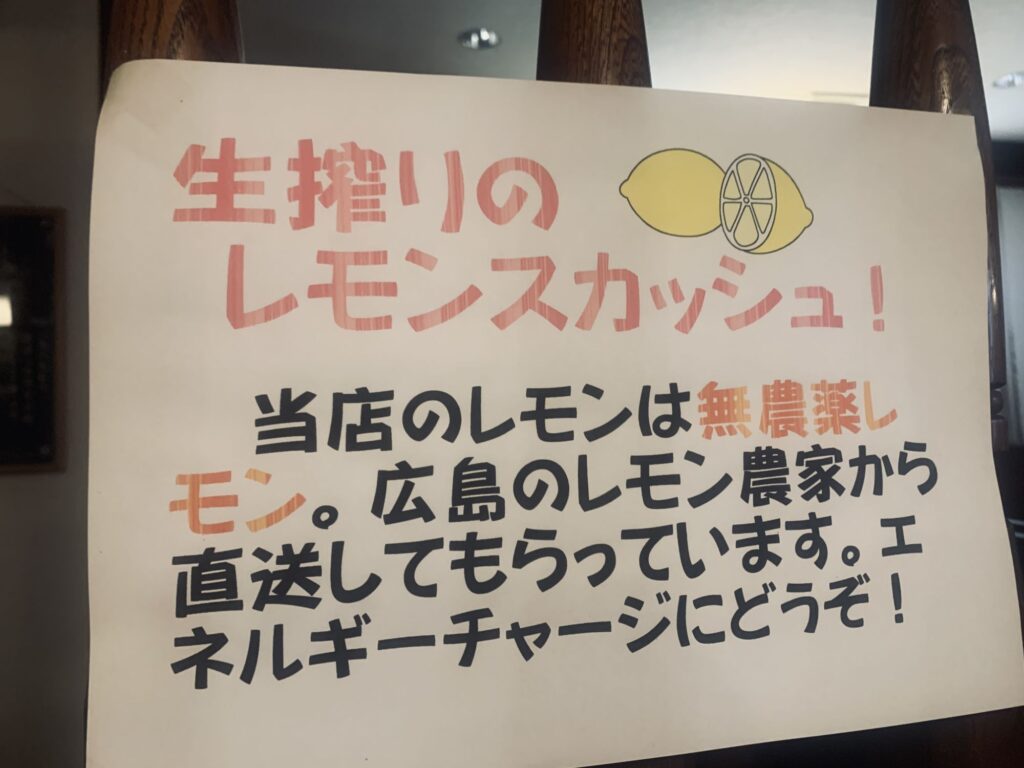 生搾りの
レモンスカッシュ！
当店のレモンは無農薬レ
モン。広島のレモン農家から
直送してもらっています。エ
ネルギーチャージにどうぞ！